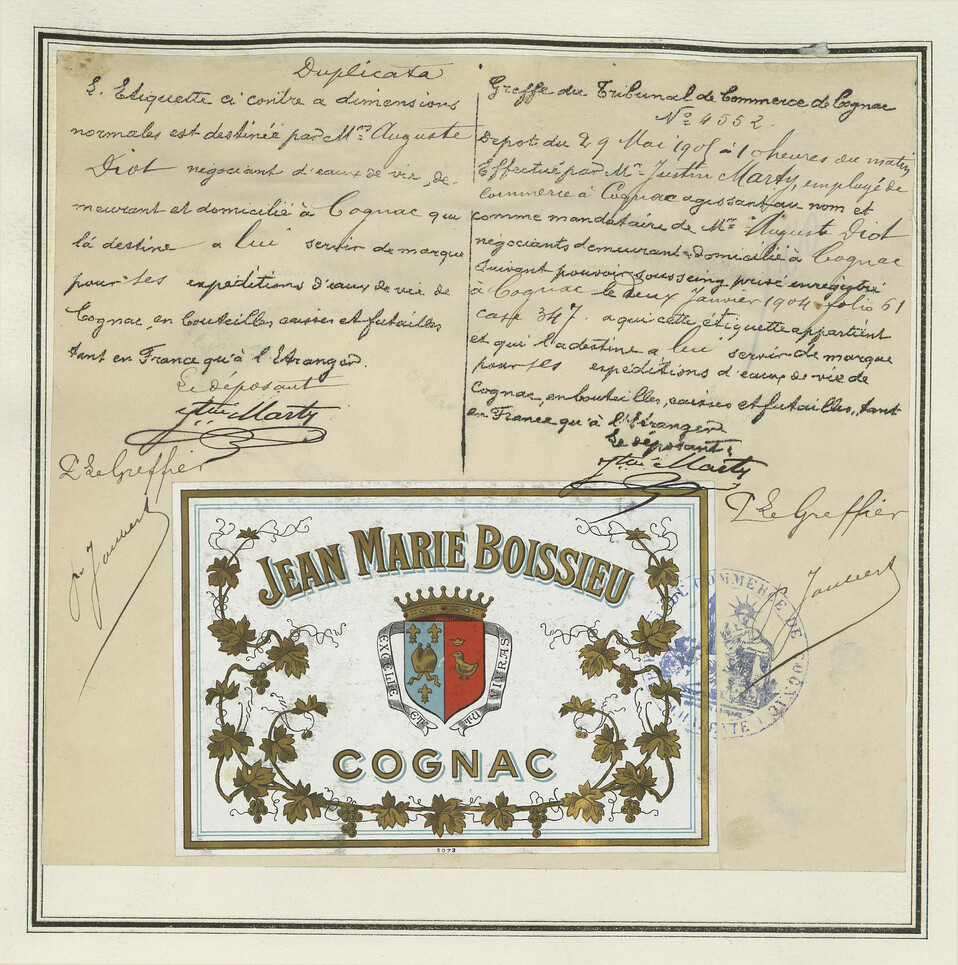 Duplicata
L. Etiquette ci contre a dimensions
normales est destinée par Mr. Auguste
Diot négociant d'eaux de vie, de-
meurant et domicilié à Cognac qui
là destine a lui servir de marque
pour ses expéditions d'eaux de vie de
Cognac, en bouteilles caisses et futailles
tant en France qu'à l'Etranger.
Le déposant
Jtin Marty
P. Le Greffier
Greffe du Tribunal de Commerce de Cognac
No 4552.
Depot du 29 Mai 1905 à 10 heures du matin
Effectué par Mr. Justin Marty, employé de
commerce à Cognac agissant au nom et
comme mandataire de Mr. Auguste Diot
négociants demeurant & domicilié à Cognac
suivant pouvoir sous seing privé enregistré
à Cognac le deux Janvier 1904 folio 61
case 347. a qui cette étiquette appartient
et qui l'a destine a lui servir de marque
pour ses expéditions d'eaux de vie de
Cognac, en bouteilles, caisses et futailles, tant
en France qu'à l'étranger
Le déposant.
Jtin Marty
P. Le Greffier
JEAN MARIE BOISSIEU
EXCELLE ET TU VIVRAS
COGNAC
5073
DE COMMERCE DE COGNAC